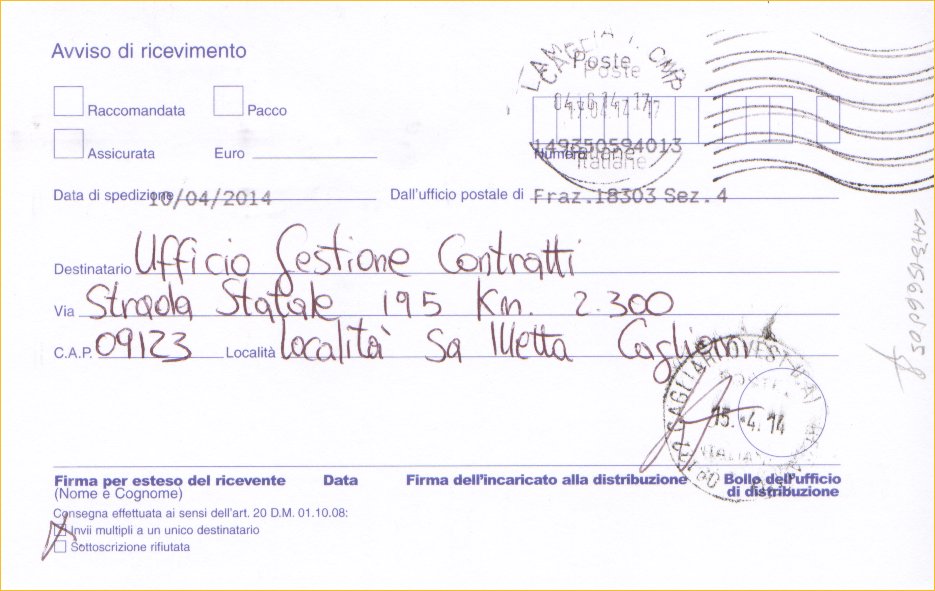 Avviso di ricevimento
Raccomandata Pacco
Assicurata Euro
Poste
Poste
149350594013
Numero
Italiane
Italiane
Data di spedizione 10/04/2014 Dall'ufficio postale di Fraz.18303 Sez.4
Destinatario Ufficio Gestione Contratti
Via Strada Statale 195 Km. 2.300
C.A.P. 09123 Località Località Sa Illetta Cagliari
15.4.14
Firma per esteso del ricevente Data Firma dell'incaricato alla distribuzione Bollo dell'ufficio
(Nome e Cognome) di distribuzione
Consegna effettuata ai sensi dell'art. 20 D.M. 01.10.08:
Invii multipli a un unico destinatario
Sottoscrizione rifiutata